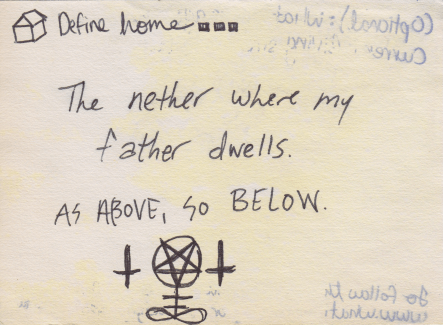 Define home...
The nether where my
father dwells.
AS ABOVE, SO BELOW.
(Optional): What
Curren
To follow th
www.what